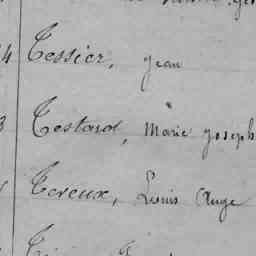 4 Tessier, Jean
3 Testard, Marie Joseph
Tereux, Louis Ange